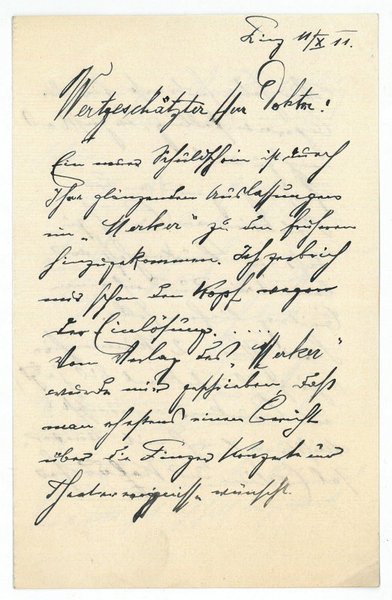 Linz 11/X 11.
Wertgeschätzter Herr Doktor!
Ein neuer Schuldschein ist durch
Ihre glänzenden Auslassungen
im „Merker" zu den früheren
hinzugekommen. Ich zerbrich
mir schon den Kopf wegen
der Einlösung. . . . . .
Vom Verlag des „Merker"
wurde mir geschrieben, daß
man ehestens einen Bericht
über die Linzer Konzert und
Theaterereignisse wünscht.